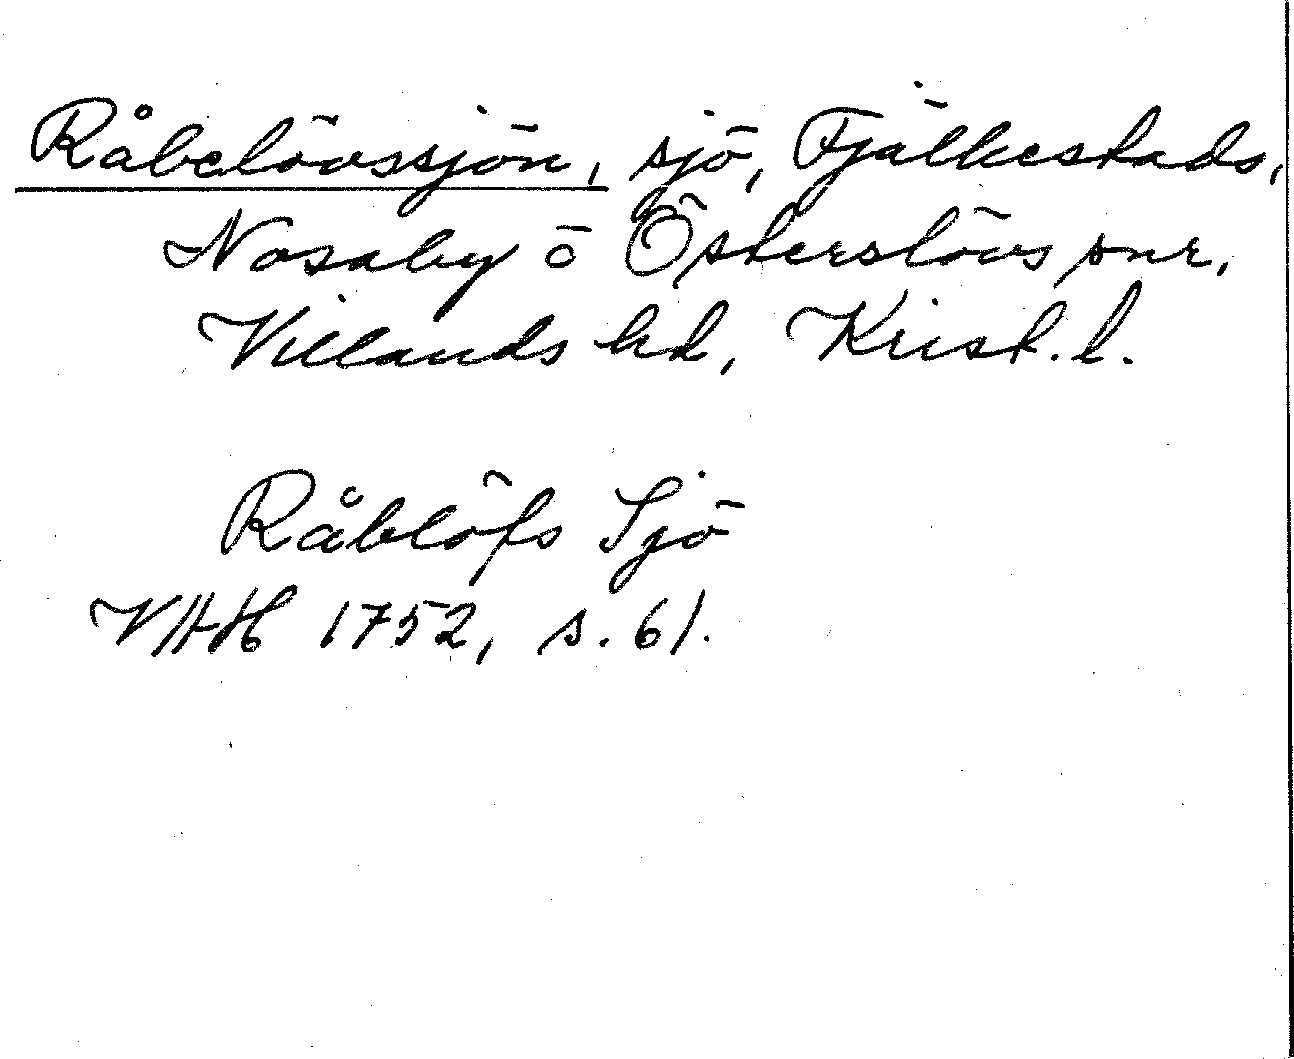 Råbelövssjön, sjö, Fjälkestads,
Nosaby o Österslövs snr.
Villands hd, Krist. l.
Råblöfs Sjö
VHH 1752, s. 61.